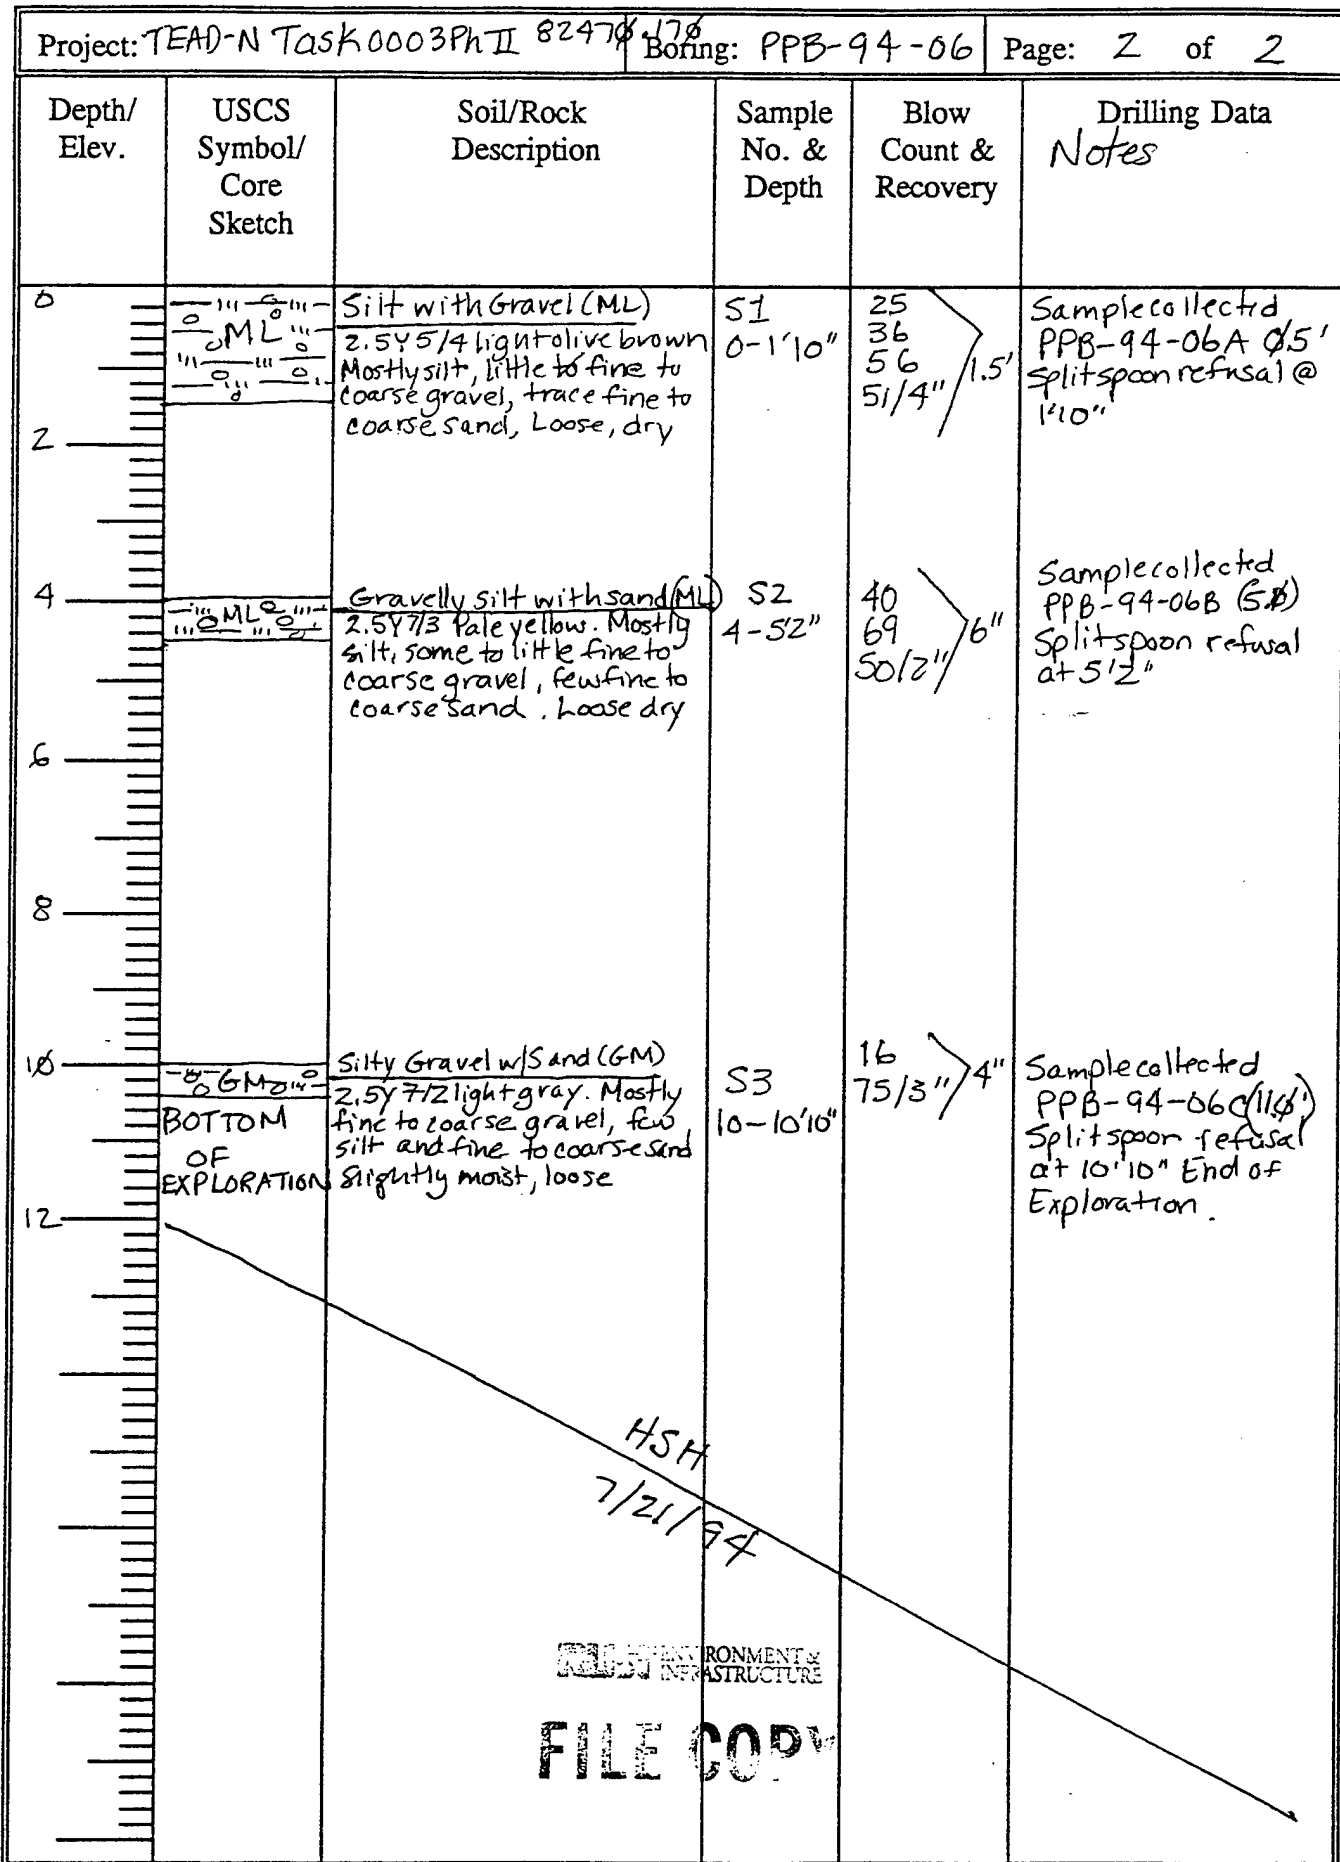 Project: TEAD-N Task 0003 Ph II 82470.170 Boring: PPB-94-06 Page: 2 of 2
Depth/ Elev.
USCS Symbol/ Core Sketch
Soil/Rock Description
Sample No. & Depth
Blow Count & Recovery
Drilling Data
Notes
0
ML
Silt with Gravel (ML)
2.5Y 5/4 light olive brown
Mostly silt, little to fine to
coarse gravel, trace fine to
coarse sand, Loose, dry
S1
0-1'10"
25
36
56
51/4"
1.5'
Sample collected
PPB-94-06A 0.5'
Splitspoon refusal @
1'10"
2
4
ML
Gravelly silt with sand (ML)
2.5Y 7/3 Pale yellow. Mostly
silt, some to little fine to
coarse gravel, few fine to
coarse sand. Loose dry
S2
4-5'2"
40
69
50/2"
6"
Sample collected
PPB-94-06B (5.0)
Splitspoon refusal
at 5'2"
6
8
10
GM
BOTTOM
OF
EXPLORATION
Silty Gravel w/Sand (GM)
2.5Y 7/2 light gray. Mostly
fine to coarse gravel, few
silt and fine to coarse sand
Slightly moist, loose
S3
10-10'10"
16
75/3"
4"
Sample collected
PPB-94-06C (11.0')
Splitspoon refusal
at 10'10" End of
Exploration.
12
HSH
7/21/94
RUST ENVIRONMENT &
INFRASTRUCTURE
FILE COPY